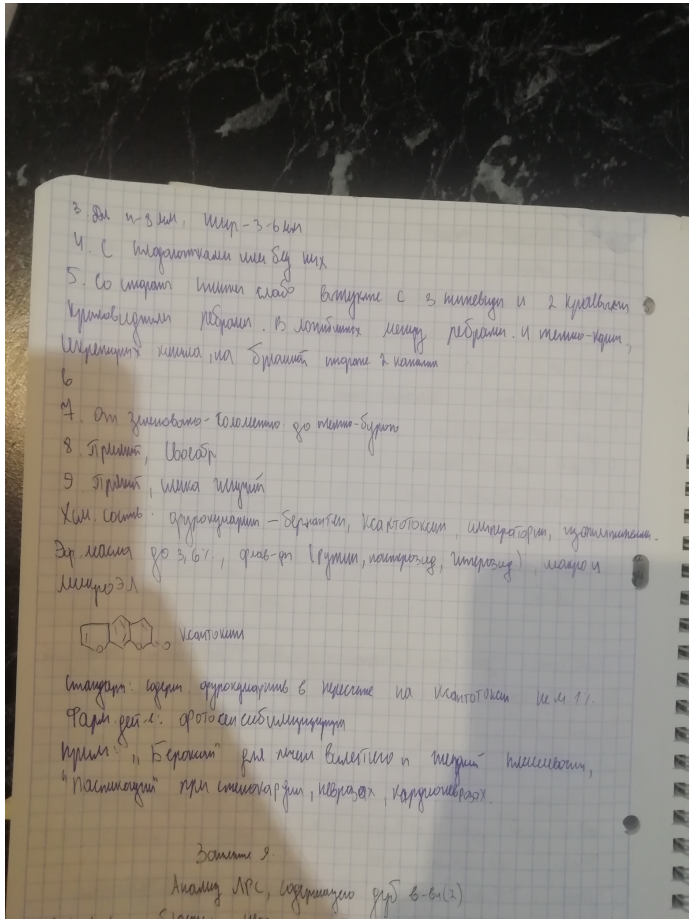 3. Дл 4-8 мм, шир-3-6 мм
4. С плодоножками или без них
5. Со стороны спинки слабо выпукле с 3 нитевидн и 2 краевыми
крыловидными ребрами. В ложбинках между ребрами. 4 темно-корич,
секреторных канала, на брюшной стороне 2 каналы
6
7. От зеленовато-соломенно до темно-бурого
8. Пряный, своеобр
9. Пряный, слегка жгучий
Хим. состав: фурокумарин – бергаптен, ксантотоксин, императорин, изопимпинеллин.
Эф. масла до 3,6%, флав-ды (рутин, ), макро и
микроЭЛ
O O O ксантоксин
стандарт: содерж фурокумаринов в пересчете на ксантотоксин не м 1%.
Фарм. дей-е: фотосенсибилизирующ
прим: "Бероксан" для лечен Витилиго и гнездной плешивости,
"Пастинацин" при стенокардии, неврозах, кардионеврозах.
Занятие 9.
Анализ ЛРС, содержащего дуб в-ва(2)